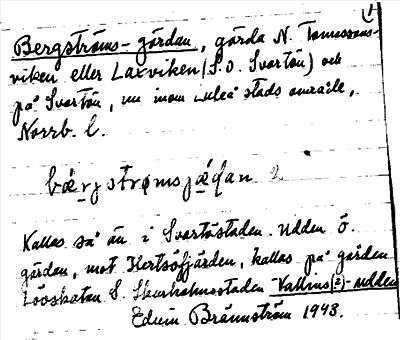 1
Bergströms-gården, gårda N. Tomassons-
viken eller Laxviken (S.O. Svartön) och
på Svartön, nu inom Luleå stads område,
Norrb. l.
bærjstrømsjǽḍan 2
Kallas så än i Svartöstaden. Udden Ö.
gården, mot Hertsöfjärden, kallas på gården
Lövskatan S. Skurholmsstaden Vallins(2)-udden
Edvin Brännström 1943.